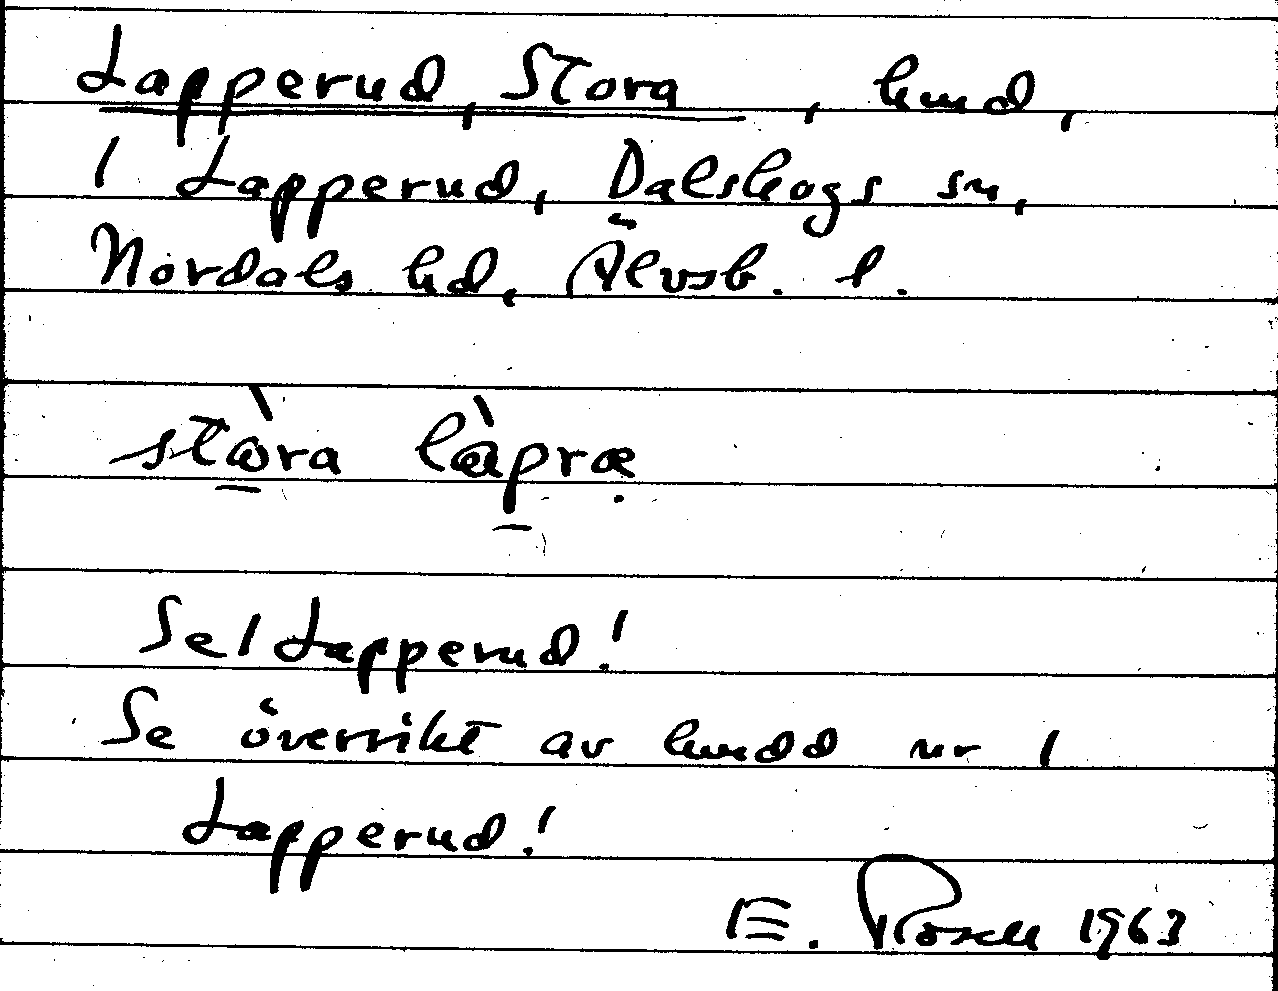 Lapperud, Stora, hmd,
1 Lapperud, Dalskogs sn,
Nordals hd, Älvsb. l.
stòra làpræ
Se 1 Lapperud!
Se översikt av hmdd nr 1
Lapperud!
E. 1963